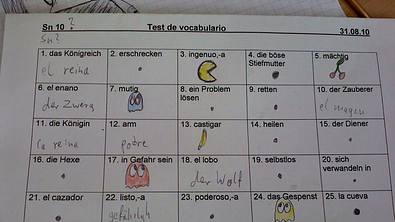 Sn 10 ? Test de vocabulario 31.08.10
Sn?
1. das Königreich 2. erschrecken 3. ingenuo,-a 4. die böse Stiefmutter 5. mächtig
el reina
6. el enano 7. mutig 8. ein Problem lösen 9. retten 10. der Zauberer
der Zwerg el magen
11. die Königin 12. arm 13. castigar 14. heilen 15. der Diener
la reina pobre
16. die Hexe 17. in Gefahr sein 18. el lobo 19. selbstlos 20. sich verwandeln in
der Wolf
21. el cazador 22. listo,-a 23. poderoso,-a 24. das Gespenst 25. la cueva
gefährlich